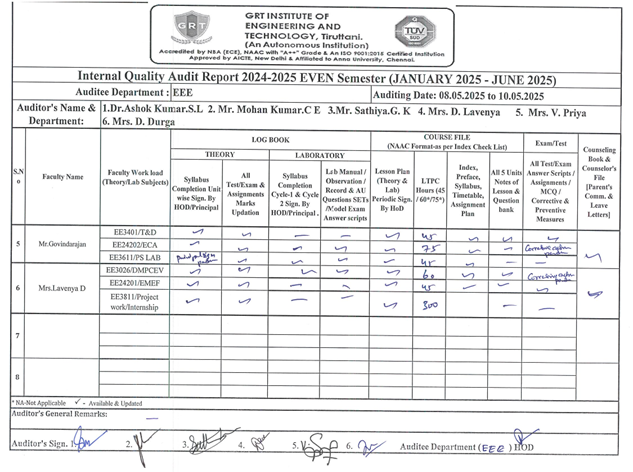 GRT INSTITUTE OF
ENGINEERING AND
TECHNOLOGY, Tiruttani.
(An Autonomous Institution)
Accredited by NBA (ECE), NAAC with "A++" Grade & An ISO 9001:2015 Certified Institution
Approved by AICTE, New Delhi & Affiliated to Anna University, Chennai.
GRT
TÜV
SUD
Internal Quality Audit Report 2024-2025 EVEN Semester (JANUARY 2025 - JUNE 2025)
Auditee Department : EEE Auditing Date: 08.05.2025 to 10.05.2025
Auditor's Name & Department: 1.Dr.Ashok Kumar.S.L 2. Mr. Mohan Kumar.C E 3.Mr. Sathiya.G. K 4. Mrs. D. Lavenya 5. Mrs. V. Priya
6. Mrs. D. Durga
S.No Faculty Name Faculty Work load (Theory/Lab Subjects) LOG BOOK COURSE FILE (NAAC Format as per Index Check List) Exam/Test Counseling Book & Counselor's File [Parent's Comm, & Leave Letters]
THEORY LABORATORY
Syllabus Completion Unit wise Sign. By HOD/Principal
All Test/Exam & Assignments Marks Updation
Syllabus Completion Cycle-1 & Cycle 2 Sign. By HOD/Principal .
Lab Manual / Observation / Record & AU Questions SETs /Model Exam Answer scripts
Lesson Plan (Theory & Lab) Periodic Sign. By HoD
LTPC Hours (45 / 60*/75*)
Index, Preface, Syllabus, Timetable, Assignment Plan
All 5 Units Notes of Lesson & Question bank
All Test/Exam Answer Scripts / Assignments / MCQ / Corrective & Preventive Measures
5 Mr.Govindarajan
EE3401/T&D 45
EE24202/ECA 75 Corrective action pending
EE3611/PS LAB 45
6 Mrs.Lavenya D
EE3026/DMPCEV 60 Corrective action pending
EE24201/EMEF 45
EE3811/Project work/Internship 300
7
8
* NA-Not Applicable ✓ - Available & Updated
Auditor's General Remarks: —
Auditor's Sign. 1. 2. 3. 4. 5. 6. Auditee Department (EEE) HOD